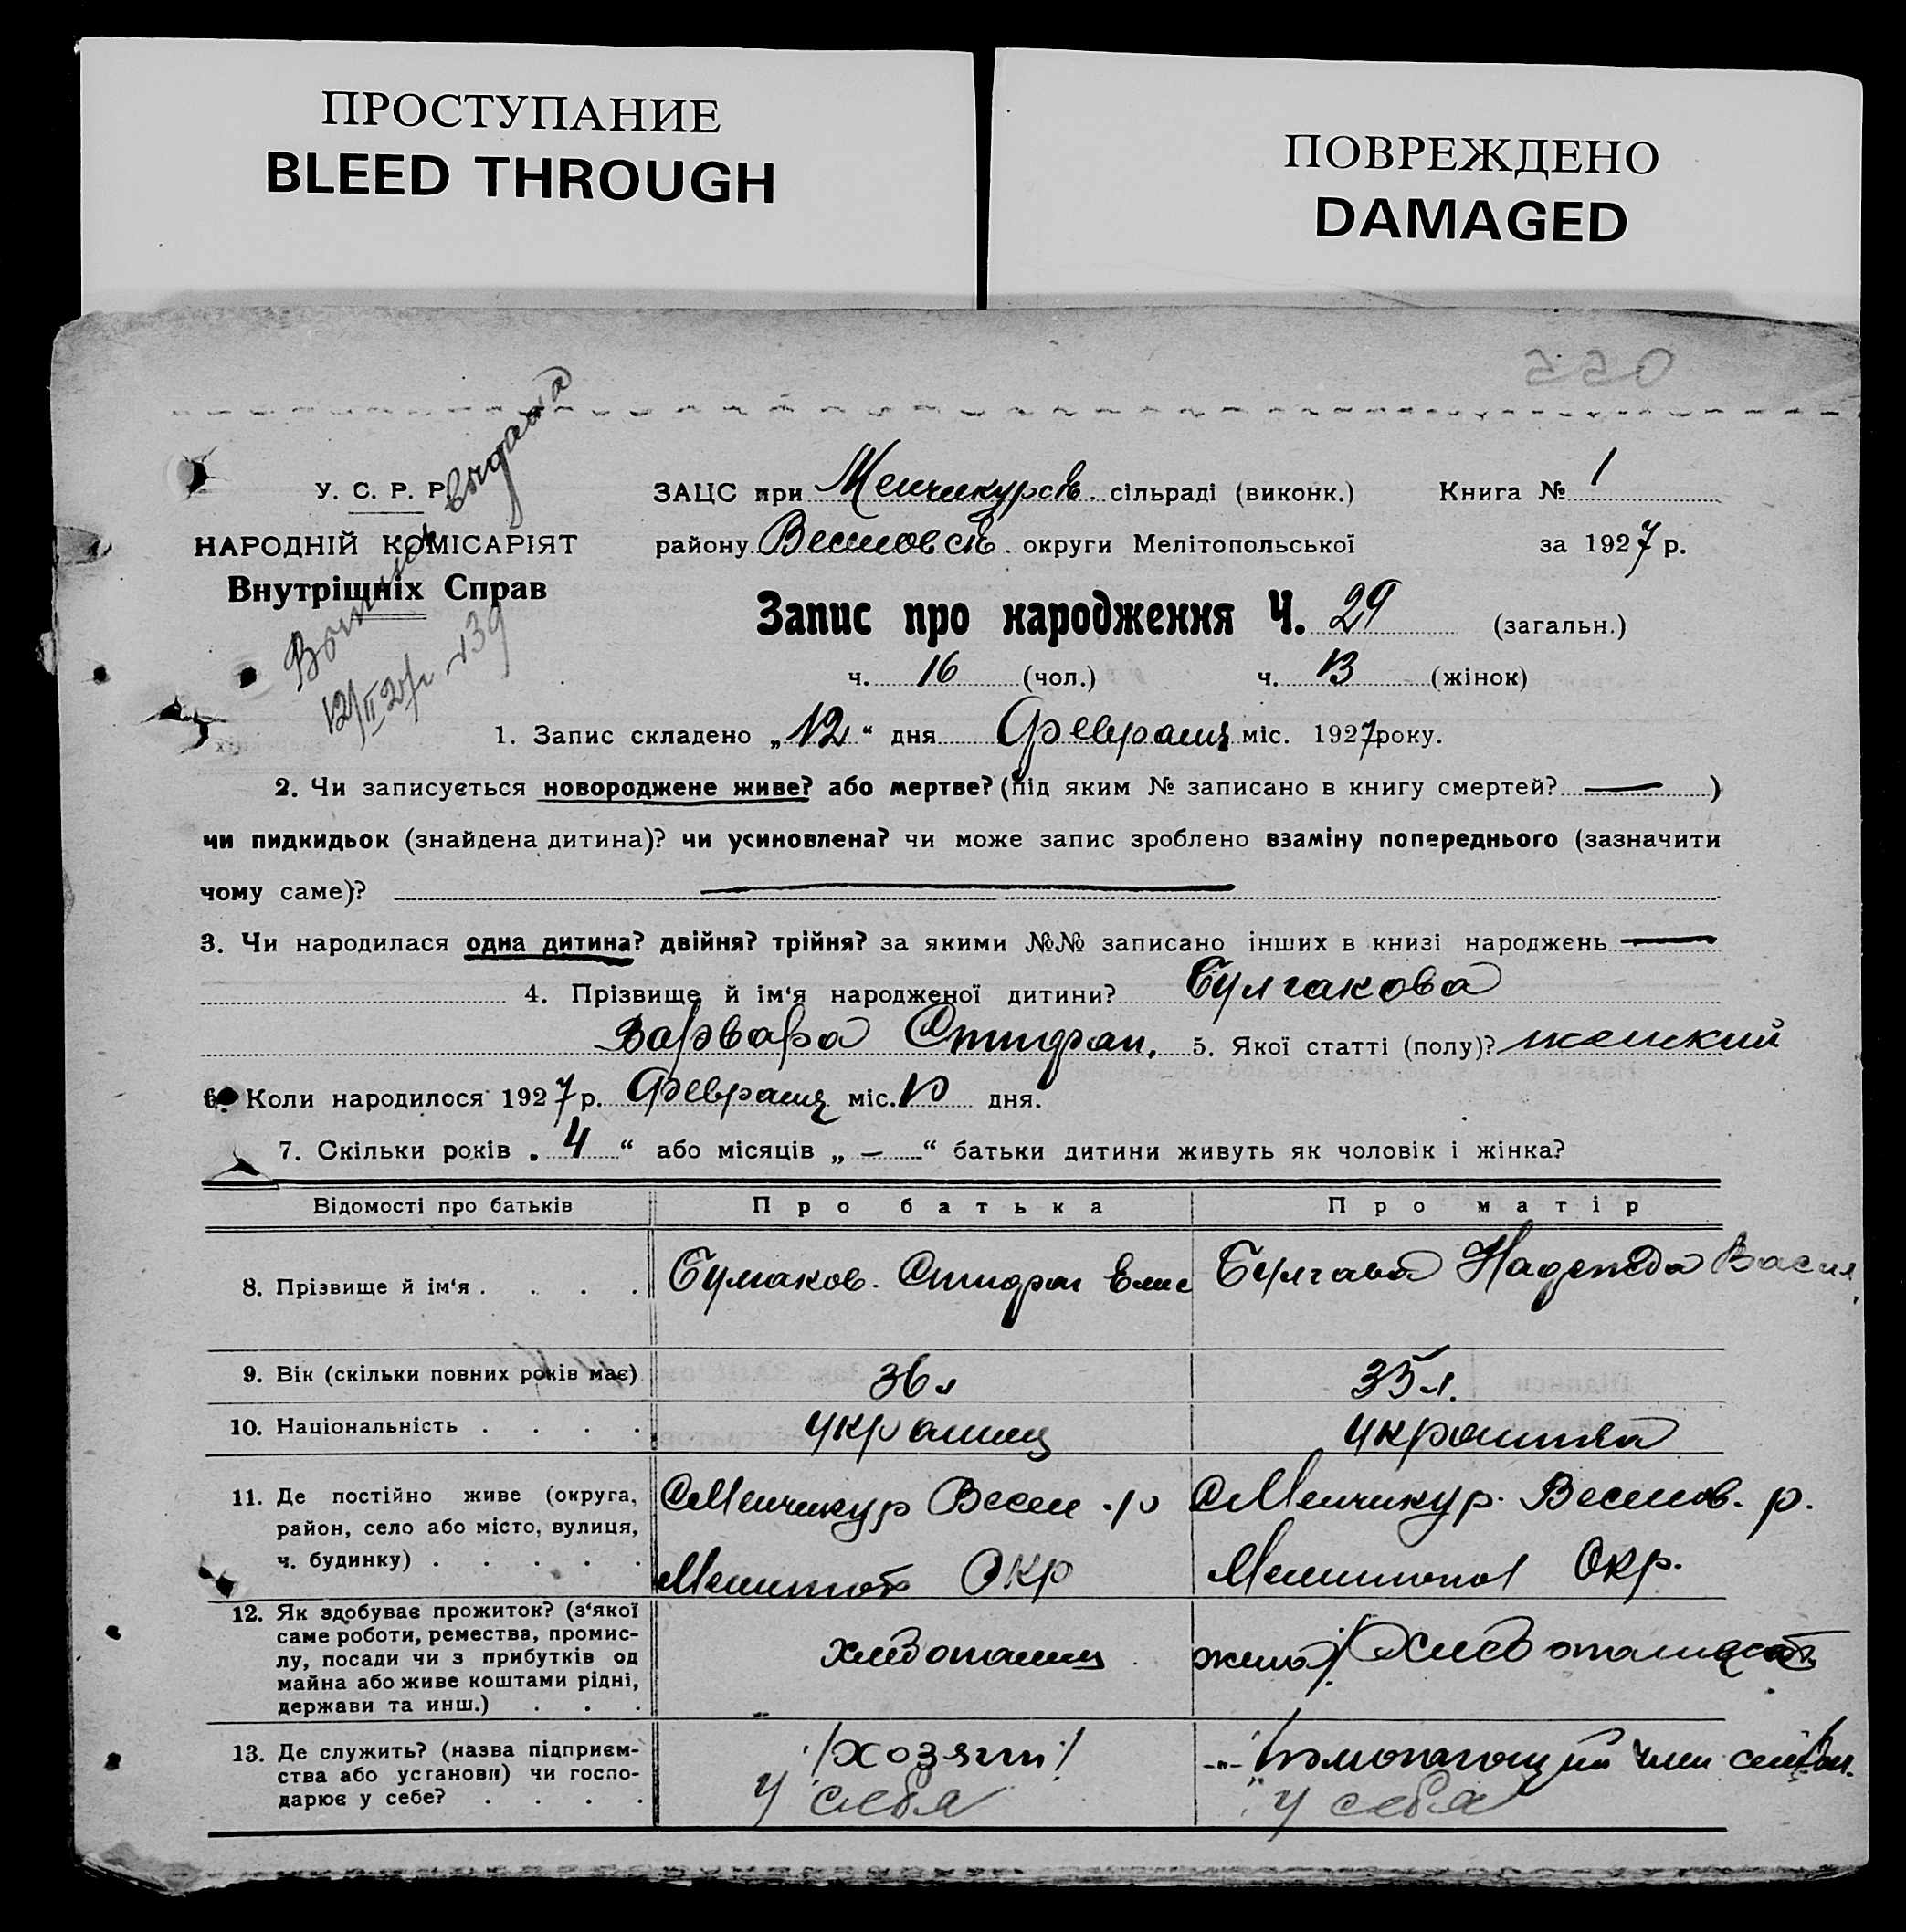 ПРОСТУПАНИЕ
BLEED THROUGH
ПОВРЕЖДЕНО
DAMAGED
550
У. С. Р. Р.
НАРОДНІЙ КОМІСАРІЯТ
Внутрішніх Справ
выдана
12/II 27г №39
ЗАЦС при Менчикурск. сільраді (виконк.) Книга № 1
району Веселовск. округи Мелітопольської за 1927 р.
Запис про народження Ч. 29 (загальн.)
ч. 16 (чол.) ч. 13 (жінок)
1. Запис складено „12“ дня Февраля міс. 1927 року.
2. Чи записується новороджене живе? або мертве? (під яким № записано в книгу смертей? — )
чи пидкидьок (знайдена дитина)? чи усиновлена? чи може запис зроблено взаміну попереднього (зазначити
чому саме)? —
3. Чи народилася одна дитина? двійня? трійня? за якими №№ записано інших в книзі народжень —
4. Прізвище й ім‘я народженої дитини? Булгакова
Варвара 5. Якої статті (полу)? женский
6. Коли народилося 1927 р. Февраля міс. 10 дня.
7. Скільки років „4“ або місяців „—“ батьки дитини живуть як чоловік і жінка?
Відомості про батьків Про батька Про матір
8. Прізвище й ім‘я . . . . Булгаков Надежда Васил
9. Вік (скільки повних років має) 36 л 35 л.
10. Національність . . . . украинец украинка
11. Де постійно живе (округа, С Менчикур Весел р С Менчикур. Веселов. р.
район, село або місто, вулиця,
ч. будинку) . . . . . Мелитоп Окр Мелитопол Окр.
12. Як здобуває прожиток? (з‘якої
саме роботи, ремества, промис-
лу, посади чи з прибутків од хлебопашец жена хлебопашца
майна або живе коштами рідні,
держави та инш.) . . .
13. Де служить? (назва підприєм- /хозяин/ -„- /помогающий член семьи
ства або установи) чи госпо-
дарює у себе? . . . . у себя у себя